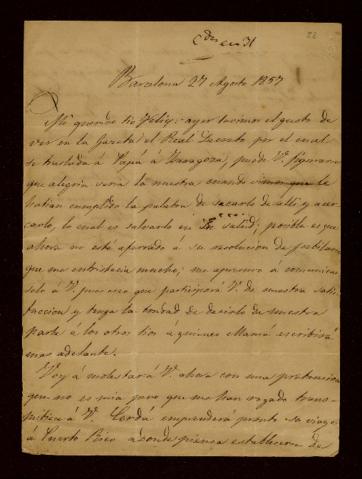 22
Cdo en 31
Barcelona 27 Agosto 1857
Mi querido tio Felix: ayer tuvimos el gusto de
ver en la Gaceta el Real Decreto por el cual
se traslada á Papá á Zaragoza, puede V. figurarse
que alegria seria la nuestra cuando vimos que le
habian cumplido la palabra de sacarlo de alli y acer-
carlo, lo cual es salvarlo en su salud; posible es que
ahora no esté aferrado á su resolucion de jubilarse
que me entristecia mucho; me apresuro a comunicar-
selo á V. pues creo que participará V. de nuestra satis-
faccion y tenga la bondad de decirlo de nuestra
parte á los otros tios á quienes Mamá escribirá
mas adelante.
Voy á molestar á V. ahora con una pretencion
que no es mia pero que me han rogado trans-
mitir á V. Cerdá emprenderá pronto su viage
á Puerto Rico á donde piensa establecerse de